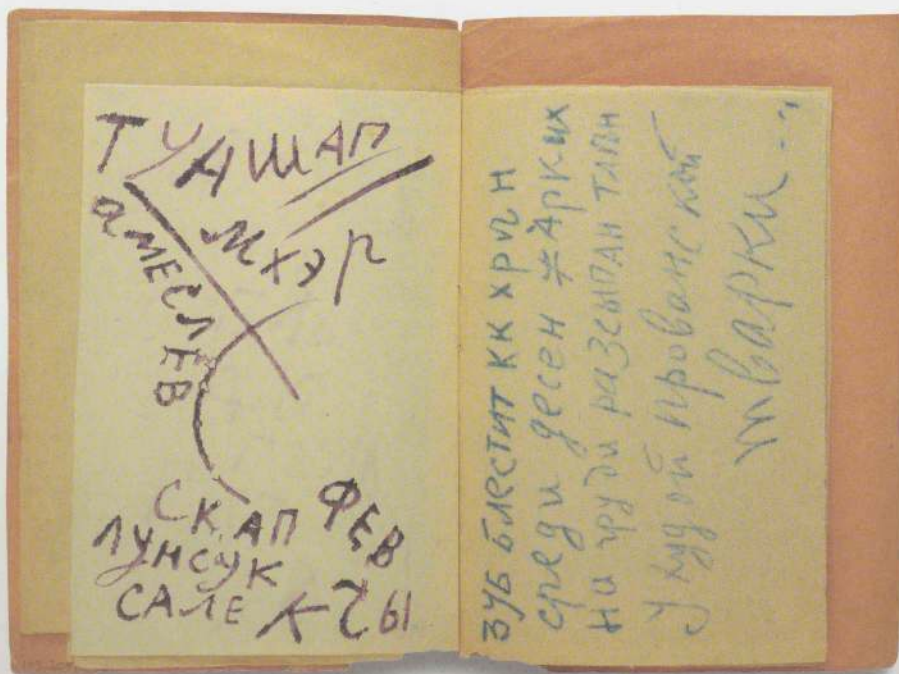 ТУАШАП
МХЭР
аМЕСЛЕВ
СКАП
ЛУНСУК
САЛЕ
ФЕВ
КЧЫ
ЗУБ БЛЕСТИТ КК
среди десен ЖАРКИХ
На груди разсыпан
у худой прованской
тварки...